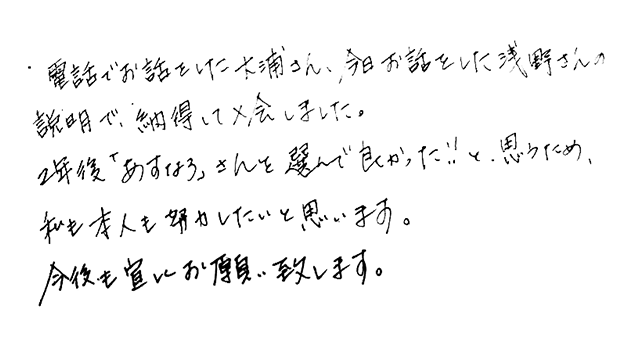 ・電話でお話をした大浦さん、今日お話をした浅野さんの
説明で、納得して入会しました。
2年後「あすなろ」さんを選んで良かった!!と、思うため、
私も本人も努力したいと思います。
今後も宜しくお願い致します。